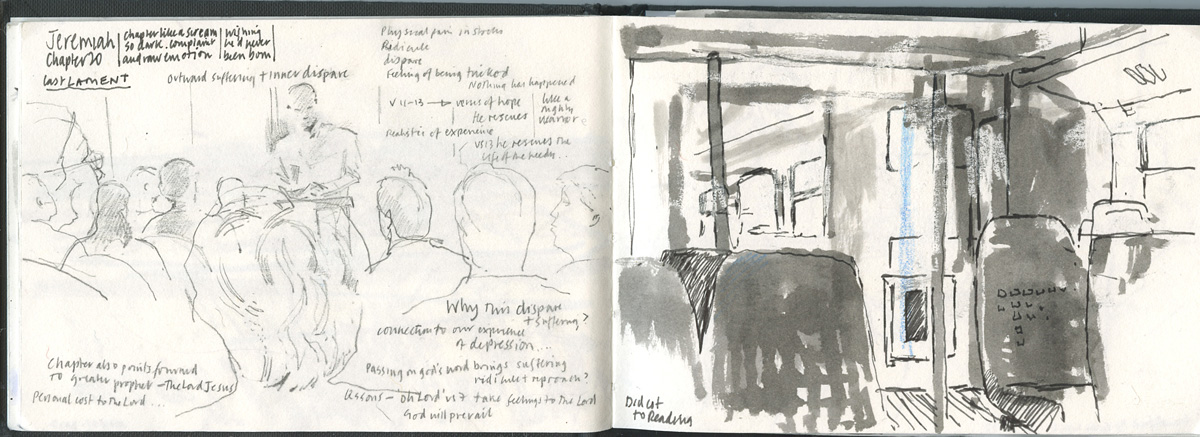 Jeremiah
Chapter 20
chapter like a scream
so dark. complaint
and raw emotion
wishing
he'd never
been born
Last LAMENT
Outward suffering + inner dispare
Physical pain in stocks
Radicule
dispare
Feeling of being tricked
Nothing has happened
V 11-13 → verses of hope
He rescues
like a
mighty
warrior
Realistic of experience
VS 13 he rescues the
life of the needy...
Why this dispare
+ suffering?
connection to our experience
of depression...
Passing on god's word brings suffering
ridicule + reproach?
Lessons - Oh Lord v7 take feelings to the Lord
God will prevail
Chapter also points forward
to greater prophet - The Lord Jesus
Personal cost to the Lord ...
Didcot
to Reading